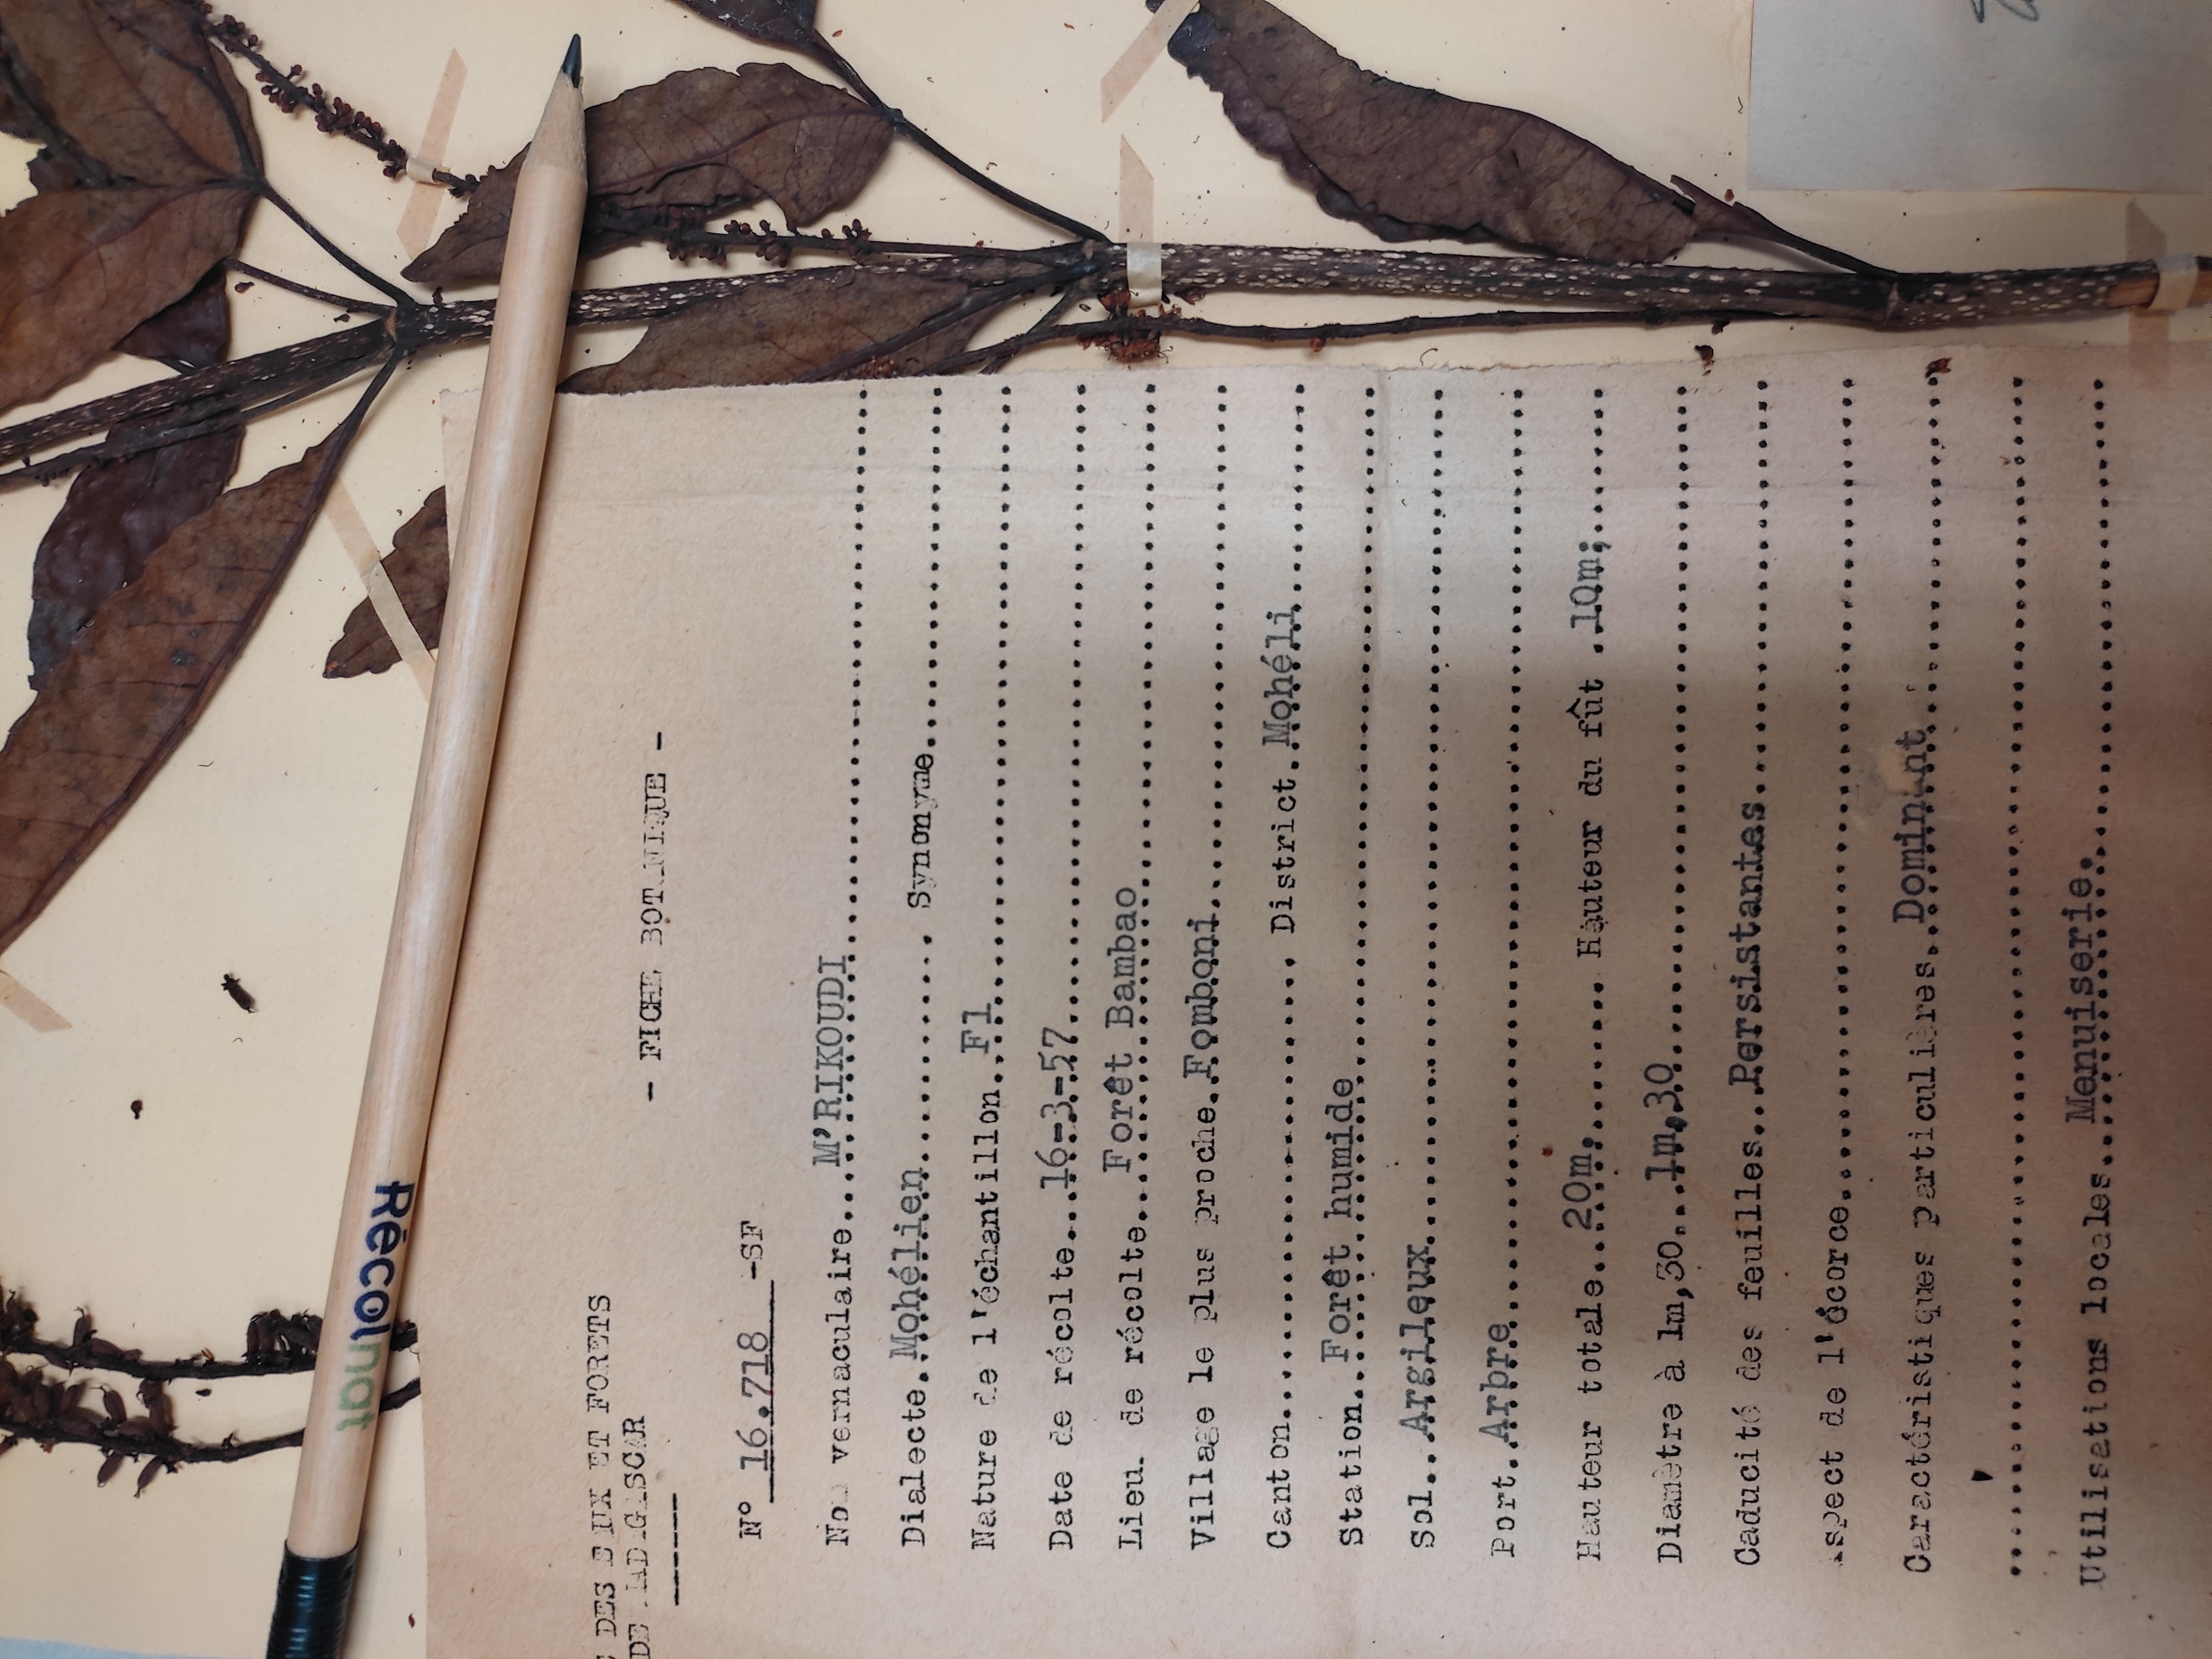 DES E UX ET FORETS
DE MADAGASCAR
- FICHE BOTANIQUE -
N° 16.718 -SF
Nom vernaculaire... M'RIKOUDI
Dialecte. Mohélien...... Synonyme
Nature de l'échantillon. Fl
Date de récolte...16-3-57
Lieu de récolte... Forêt Bambao
Village le plus proche. Fomboni
Canton............ District. Mohéli
Station... Forêt humide
Sol... Argileux
Port.. Arbre
Hauteur totale.. 20m;...... Hauteur du fût . 10m;
Diamètre à 1m,30... 1m,30
Caducité des feuilles.. Persistantes
Aspect de l'écorce
Caractéristiques particulières. Dominant
Utilisations locales... Menuiserie.
Récolnat